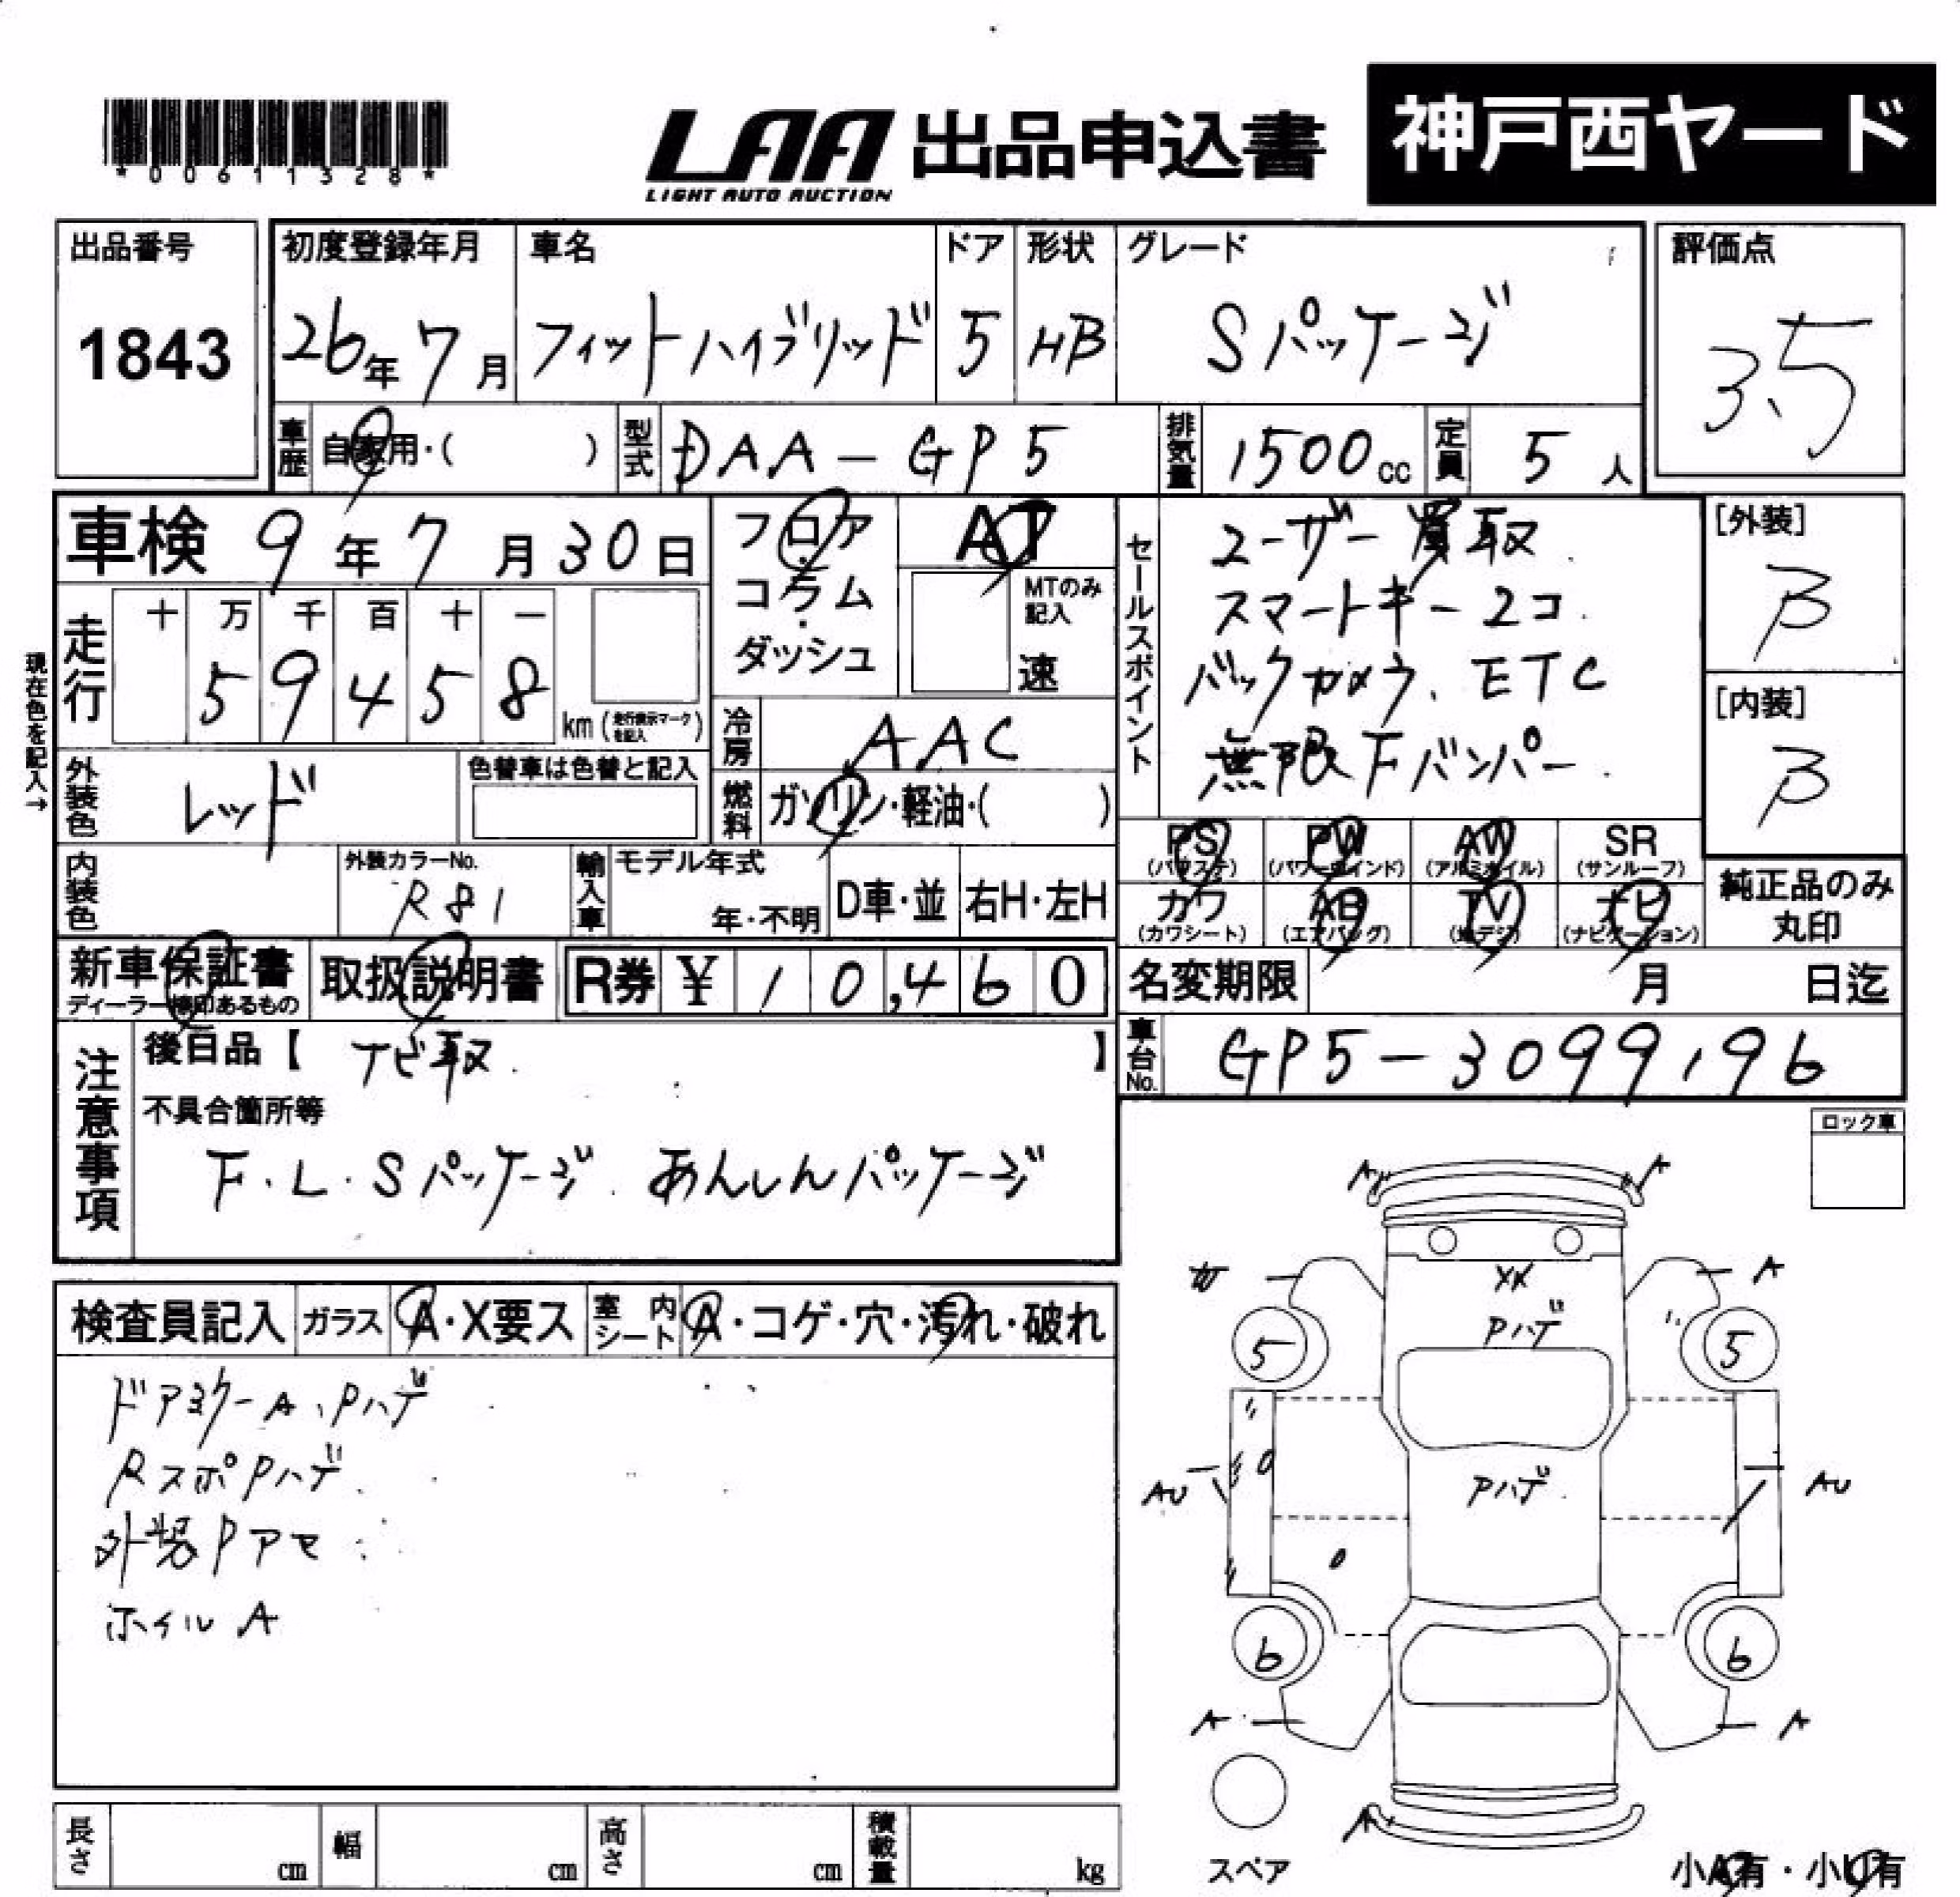 *00611328*
LAA 出品申込書
LIGHT AUTO AUCTION
神戸西ヤード
出品番号
1843
初度登録年月
26年7月
車名
フィットハイブリッド
ドア
5
形状
HB
グレード
Sパッケージ
評価点
3.5
車歴 自家用・( )
型式 DAA-GP5
排気量 1500cc
定員 5人
車検 9年7月30日
フロア・コラム・ダッシュ
AT
MTのみ記入
速
走行 十 万 千 百 十 一
5 9 4 5 8 km (走行表示マークを記入)
現在色を記入→
冷房 AAC
燃料 ガソリン・軽油・( )
外装色 レッド
色替車は色替と記入
内装色
外装カラーNo.
R81
輸入車 モデル年式
年・不明
D車・並
右H・左H
セールスポイント
ユーザー買取.
スマートキー2コ.
バックカメラ、ETC
無限Fバンパー.
[外装]
B
[内装]
B
PS (パワステ) PW (パワーウインド) AW (アルミホイル) SR (サンルーフ)
カワ (カワシート) AB (エアバッグ) TV (地デジ) ナビ (ナビゲーション)
純正品のみ丸印
新車保証書
ディーラー検印あるもの
取扱説明書
R券 ¥ 10,460
名変期限 月 日迄
車台No. GP5-3099196
注意事項
後日品【 ナビ取. 】
不具合箇所等
F.L.Sパッケージ. あんしんパッケージ
ロック車
検査員記入 ガラス A・X要ス 室内シート A・コゲ・穴・汚れ・破れ
ドアミラーA、Pハゲ
RスポPハゲ
外装Pアセ
ホイルA
A A
A
XX
Pハゲ
5 5
AU AU
Pハゲ
6 6
A A
A
スペア
小A有・小U有
長さ cm 幅 cm 高さ cm 積載量 kg